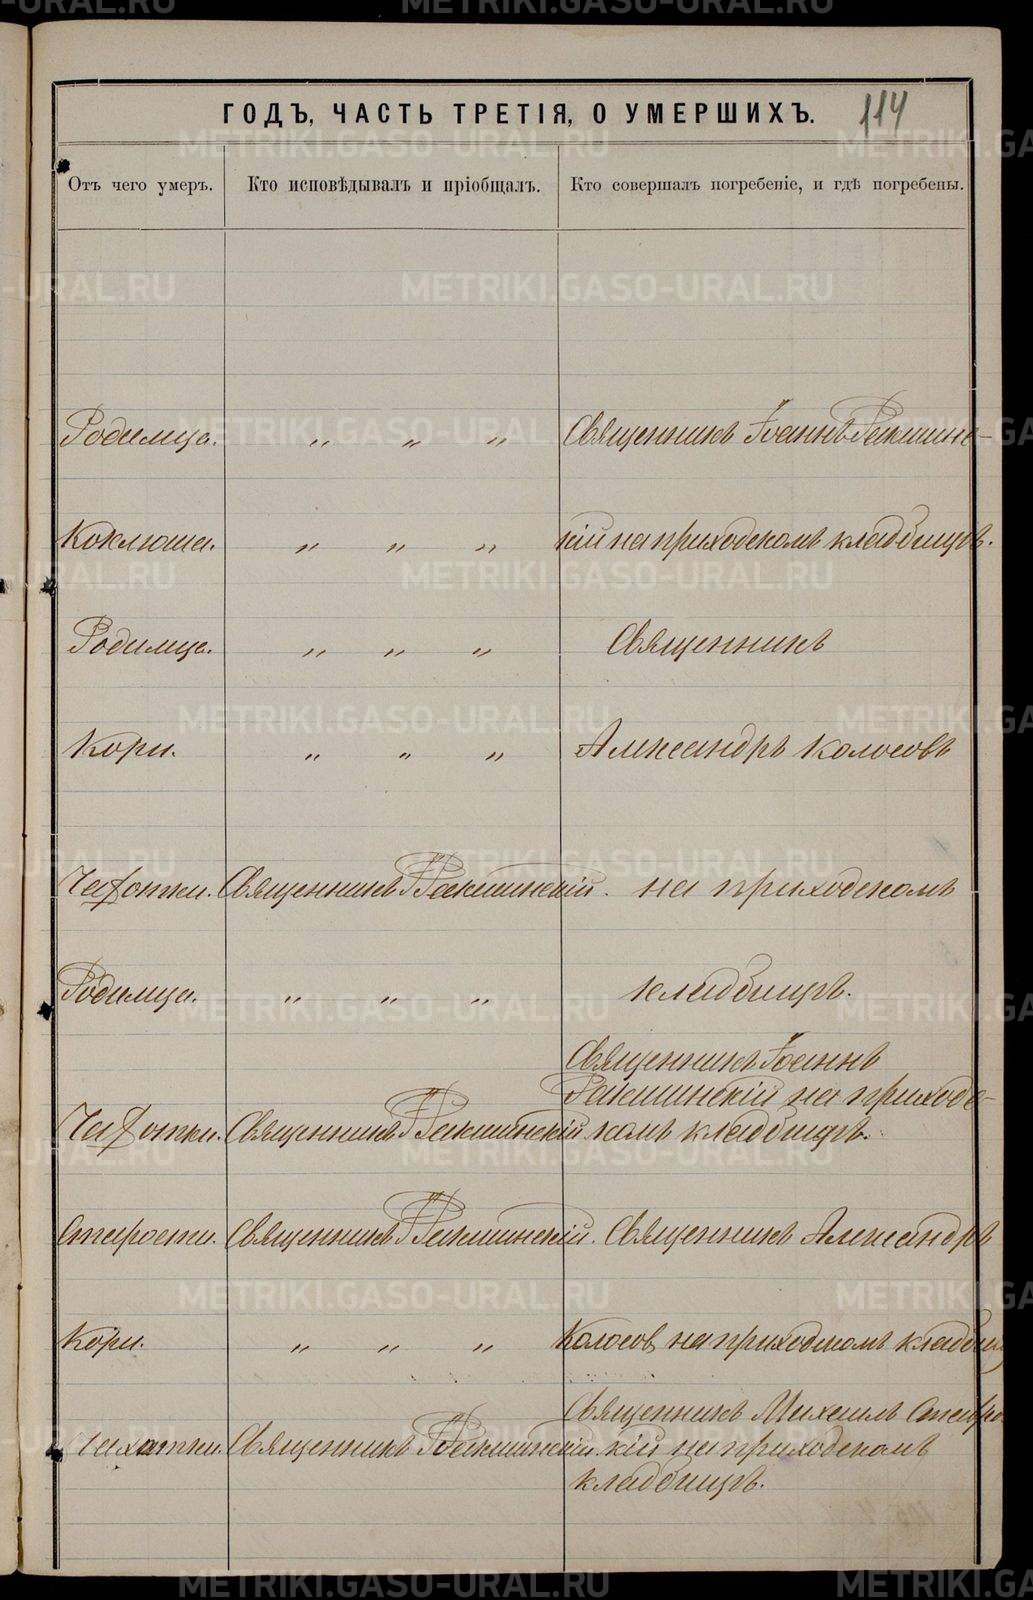 ГОДЪ, ЧАСТЬ ТРЕТІЯ, О УМЕРШИХЪ.
114
Отъ чего умеръ.
Кто исповѣдывалъ и пріобщалъ.
Кто совершалъ погребеніе, и гдѣ погребены.
Родимца. " " " Священникъ Іоаннъ Ракшинс-
Коклюша. " " " кій на приходскомъ кладбищѣ.
Родимца. " " " Священникъ
Кори. " " " Александръ Колосовъ
Чахотки. Священникъ Ракшинскій. на приходскомъ
Родимца. " " " кладбищѣ.
Священникъ Іоаннъ
Ракшинскій на приходс-
Чахотки. Священникъ Ракшинскій комъ кладбищѣ.
Старости. Священникъ Ракшинскій. Священникъ Александръ
Кори. " " " Колосовъ на приходскомъ кладбищ
Священникъ Михаилъ
Чахотки. Священникъ Ракшинскій кій на приходскомъ
кладбищѣ.
METRIKI.GASO-URAL.RU